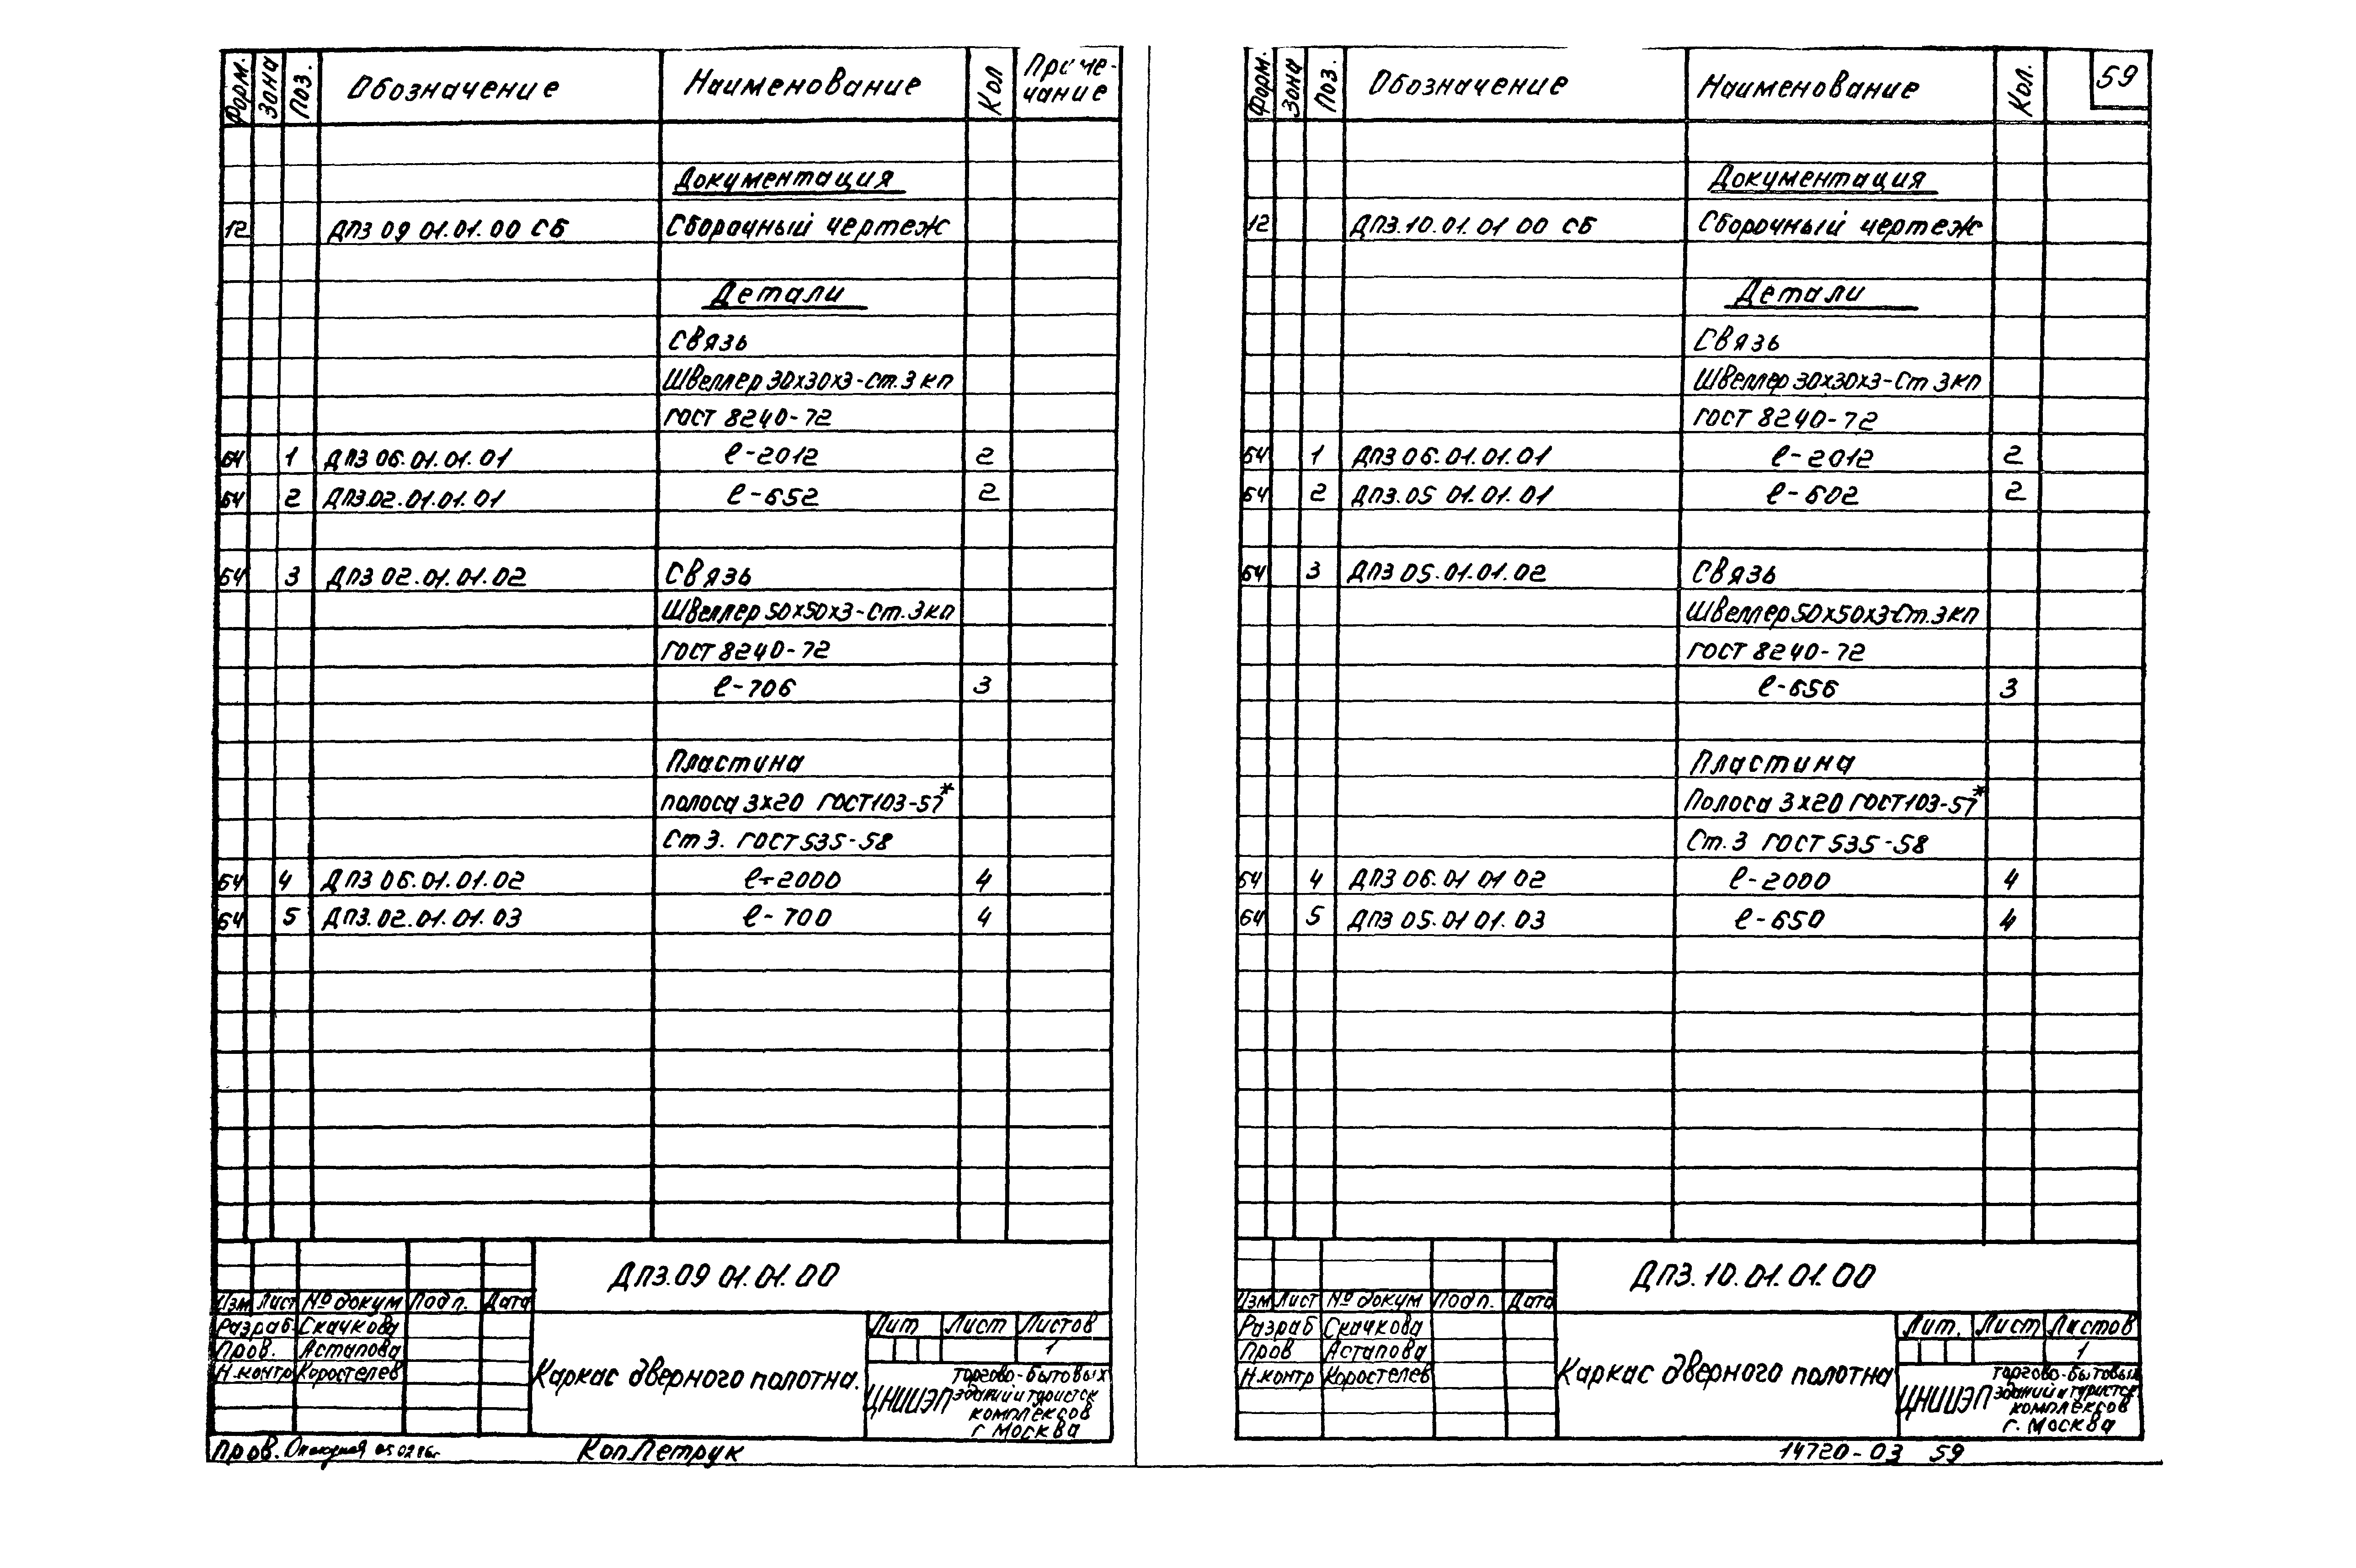 Форм. Зона Поз. Обозначение Наименование Кол Приме-
чание
Документация
12 ДПЗ 09 01.01.00 СБ Сборочный чертеж
Детали
Связь
Швеллер 30х30х3-Ст.3 кп
ГОСТ 8240-72
БЧ 1 ДПЗ 06.01.01.01 ℓ-2012 2
БЧ 2 ДПЗ.02.01.01.01 ℓ-652 2
БЧ 3 ДПЗ 02.01.01.02 Связь
Швеллер 50х50х3-Ст.3кп
ГОСТ 8240-72
ℓ-706 3
Пластина
полоса 3х20 ГОСТ103-57*
Ст 3. ГОСТ 535-58
БЧ 4 ДПЗ 06.01.01.02 ℓ-2000 4
БЧ 5 ДПЗ.02.01.01.03 ℓ-700 4
ДПЗ.09 01.01.00
Изм Лист № докум Подп. Дата
Разраб. Скачкова
Пров. Астапова
Н.контр Коростелев
Каркас дверного полотна.
Лит Лист Листов
1
ЦНИИЭП торгово-бытовых
зданий и туристск
комплексов
г Москва
Пров. Коп.Петрук
Форм. Зона Поз. Обозначение Наименование Кол. 59
Документация
12 ДПЗ.10.01.01 00 СБ Сборочный чертеж
Детали
Связь
Швеллер 30х30х3-Ст 3кп
ГОСТ 8240-72
БЧ 1 ДПЗ 06.01.01.01 ℓ-2012 2
БЧ 2 ДПЗ.05 01.01.01 ℓ-602 2
БЧ 3 ДПЗ 05.01.01.02 Связь
Швеллер 50х50х3-Ст.3кп
ГОСТ 8240-72
ℓ-656 3
Пластина
Полоса 3х20 ГОСТ103-57*
Ст.3 ГОСТ 535-58
БЧ 4 ДПЗ 06.01 01 02 ℓ-2000 4
БЧ 5 ДПЗ 05.01 01.03 ℓ-650 4
ДПЗ.10.01.01.00
Изм Лист № докум Подп. Дата
Разраб Скачкова
Пров Астапова
Н.контр Коростелев
Каркас дверного полотна
Лит. Лист Листов
1
ЦНИИЭП торгово-бытовых
зданий и туристск
комплексов
г. Москва
14720-03 59